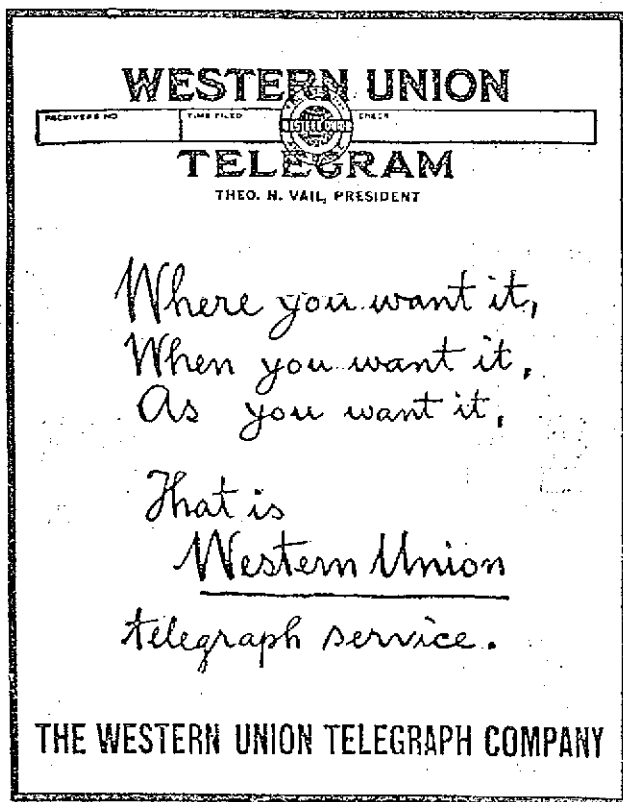 WESTERN UNION
RECEIVERS NO. TIME FILED CHECK
TELEGRAM
THEO. N. VAIL, PRESIDENT
Where you want it,
When you want it,
As you want it,
That is
Western Union
telegraph service.
THE WESTERN UNION TELEGRAPH COMPANY